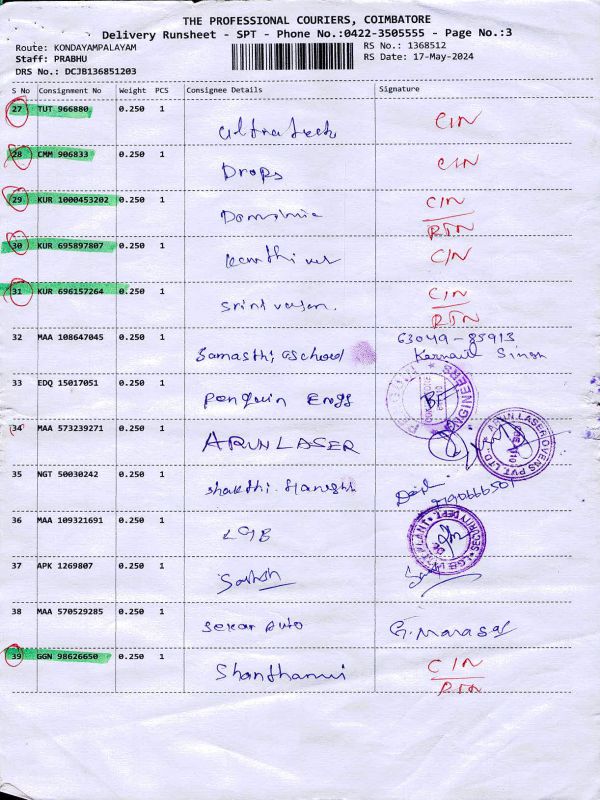 THE PROFESSIONAL COURIERS, COIMBATORE
Delivery Runsheet - SPT - Phone No.:0422-3505555 - Page No.:3
Route: KONDAYAMPALAYAM RS No.: 1368512
Staff: PRABHU RS Date: 17-May-2024
DRS No.: DCJB136851203
S No Consignment No Weight PCS Consignee Details Signature
27 TUT 966880 0.250 1 CIN
ultratech
28 CMM 906833 0.250 1 CIN
Drops
29 KUR 1000453202 0.250 1 CIN
RTN
30 KUR 695897807 0.250 1 CIN
31 KUR 696157264 0.250 1 CIN
RTN
32 MAA 108647045 0.250 1 63049-85913
Karnail Singh
33 EDQ 15017051 0.250 1
Penguin Engg
34 MAA 573239271 0.250 1
ARUN LASER
35 NGT 50030242 0.250 1
36 MAA 109321691 0.250 1
LGB
37 APK 1269807 0.250 1
38 MAA 570529285 0.250 1
Sekar Auto
39 GGN 98626650 0.250 1 CIN
RTN